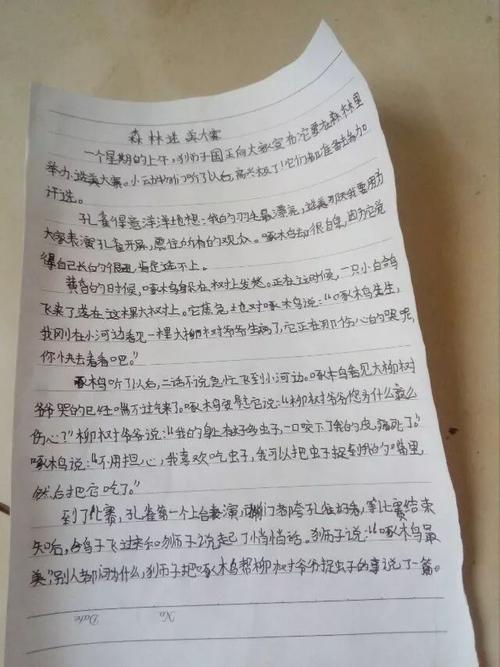 森林选美大赛
一个星期的上午,狮子国王向大家宣布它要在森林里
举办选美大赛。小动物们听了以后,高兴极了!它们都准备去参加
评选。
孔雀得意洋洋地想:我的羽毛最漂亮,选美那天我要用力
大家表演孔雀开屏,震住所有的观众。啄木鸟却很自卑,因为它觉
得自己长的很丑,肯定选不上。
黄昏的时候,啄木鸟趴在树上发愁。正在这时候,一只小白鸽
飞来了落在这棵大树上。它焦急地对啄木鸟说:“啄木鸟先生,
我刚在小河边看见一棵大柳树爷爷生病了,它正在那伤心的哭呢,
你快去看看吧。”
啄木鸟听了以后,二话不说急忙飞到小河边。啄木鸟看见大柳树
爷爷哭的已经喘不过气来了。啄木鸟安慰它说:“柳树爷爷您为什么这么
伤心?”柳树爷爷说:“我的身上有好多虫子,一口咬下了我的皮,痛死了。”
啄木鸟说:“不用担心,我喜欢吃虫子,我可以把虫子捉到我的嘴里
然后把它吃了。”
到了比赛,孔雀第一个上台表演,们都夸孔雀好看,等比赛结束
后,白鸽子飞过来和狮子说起了悄悄话。狮子说:“啄木鸟最
美”,别人都问为什么,狮子把啄木鸟帮柳树爷爷捉虫子的事说了一篇。
No
Date